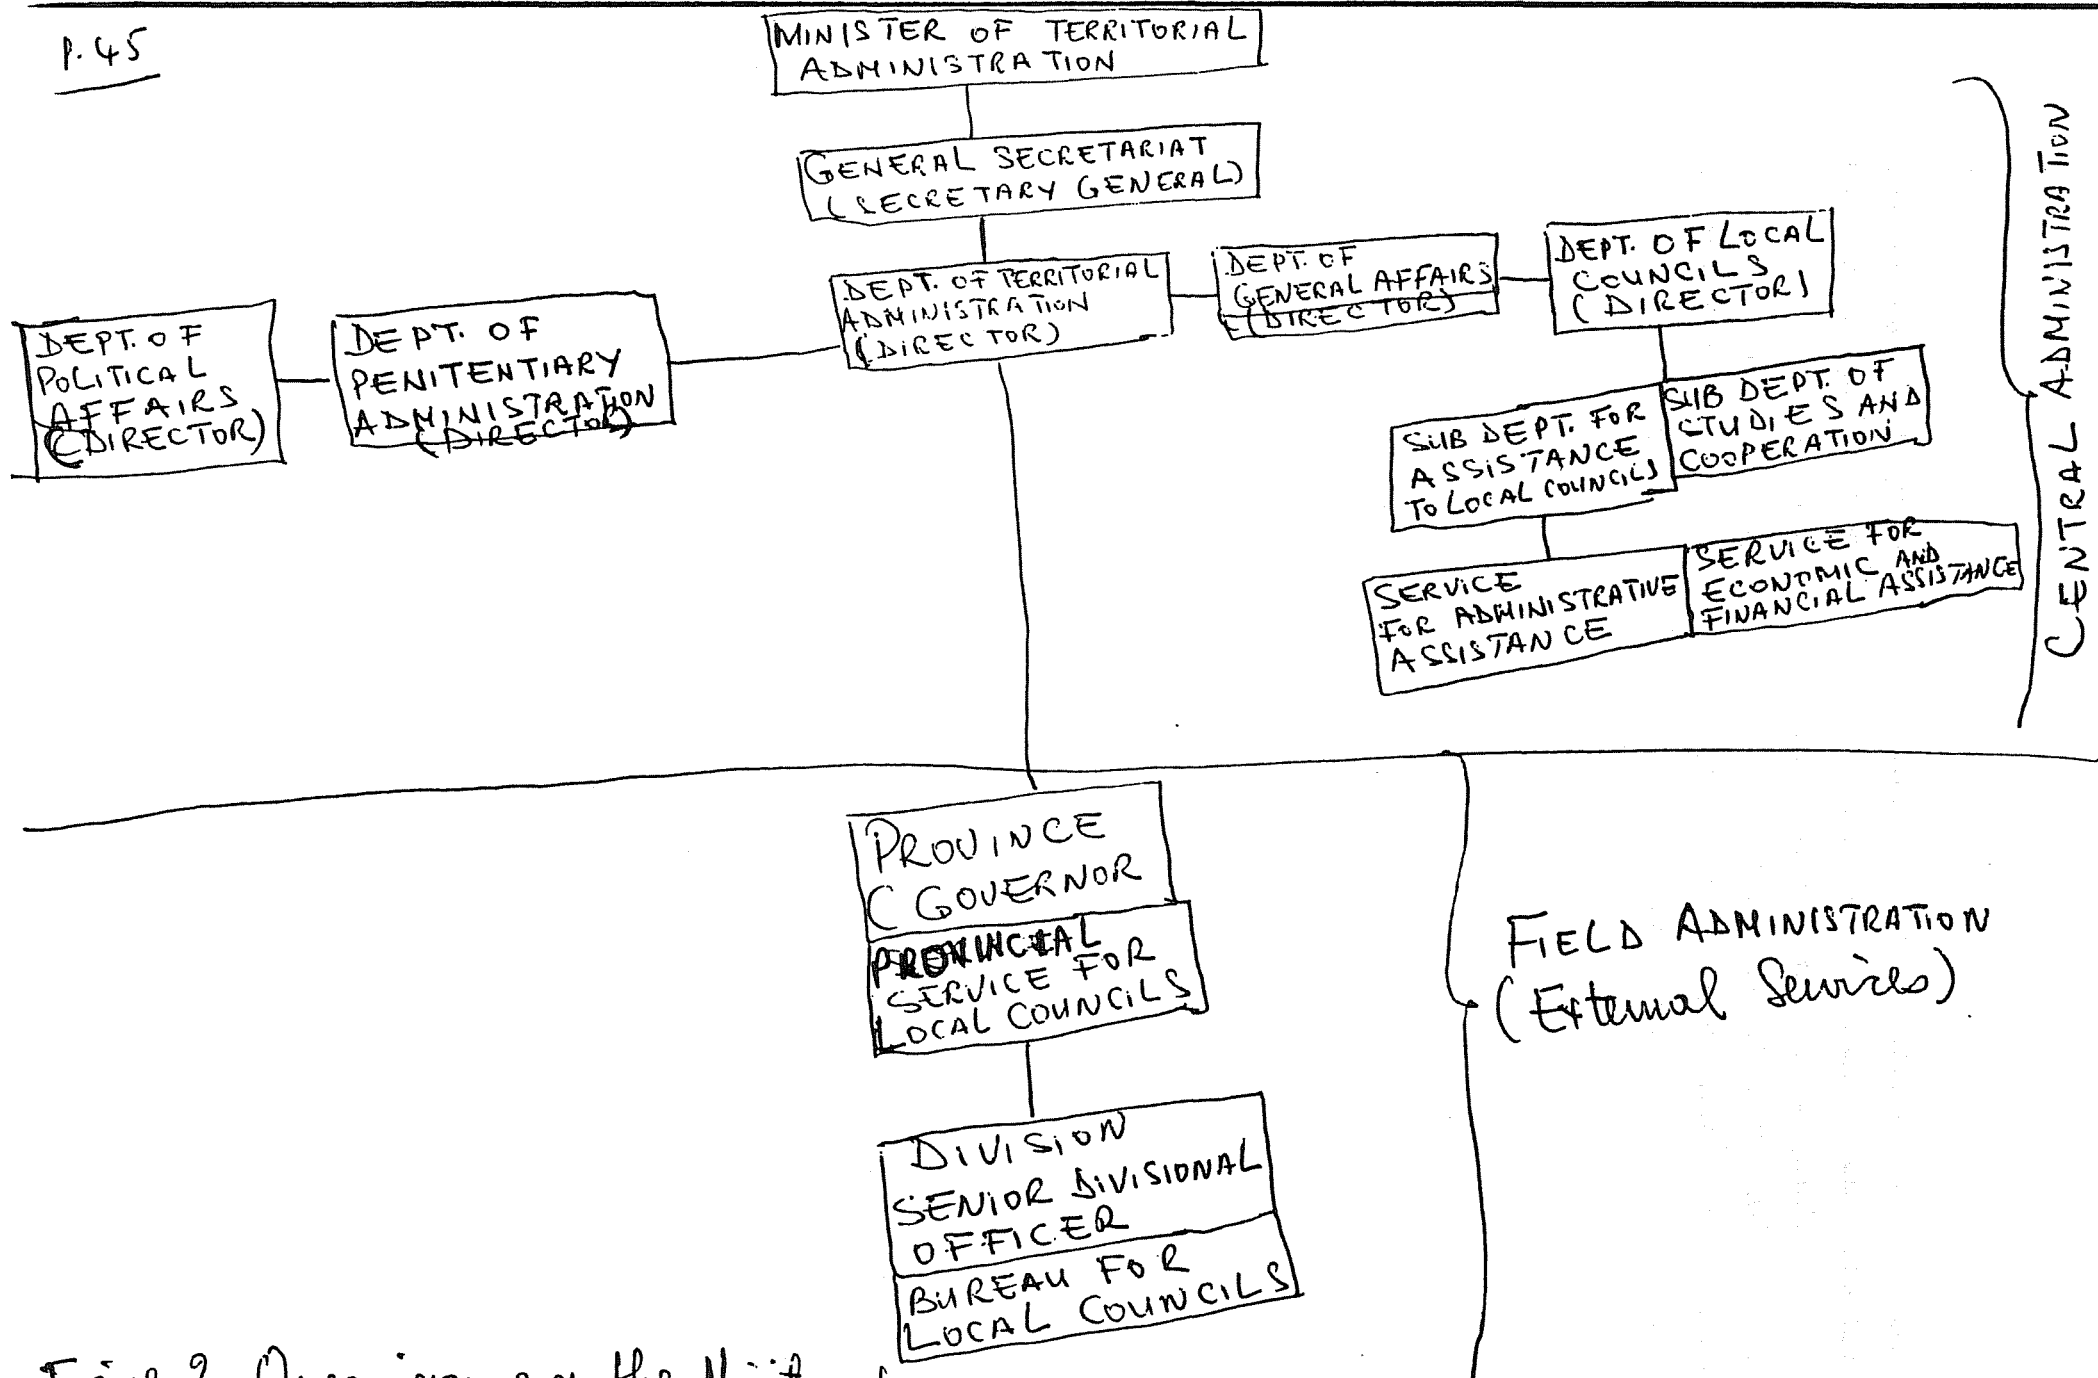 P. 45
MINISTER OF TERRITORIAL
ADMINISTRATION
GENERAL SECRETARIAT
(SECRETARY GENERAL)
DEPT. OF
POLITICAL
AFFAIRS
(DIRECTOR)
DEPT. OF
PENITENTIARY
ADMINISTRATION
(DIRECTOR)
DEPT. OF TERRITORIAL
ADMINISTRATION
(DIRECTOR)
DEPT. OF
GENERAL AFFAIRS
(DIRECTOR)
DEPT. OF LOCAL
COUNCILS
(DIRECTOR)
SUB DEPT. FOR
ASSISTANCE
TO LOCAL COUNCILS
SUB DEPT. OF
STUDIES AND
COOPERATION
SERVICE
FOR ADMINISTRATIVE
ASSISTANCE
SERVICE FOR
ECONOMIC AND
FINANCIAL ASSISTANCE
CENTRAL ADMINISTRATION
PROVINCE
( GOVERNOR
PROVINCIAL
SERVICE FOR
LOCAL COUNCILS
DIVISION
SENIOR DIVISIONAL
OFFICER
BUREAU FOR
LOCAL COUNCILS
FIELD ADMINISTRATION
(External Services)